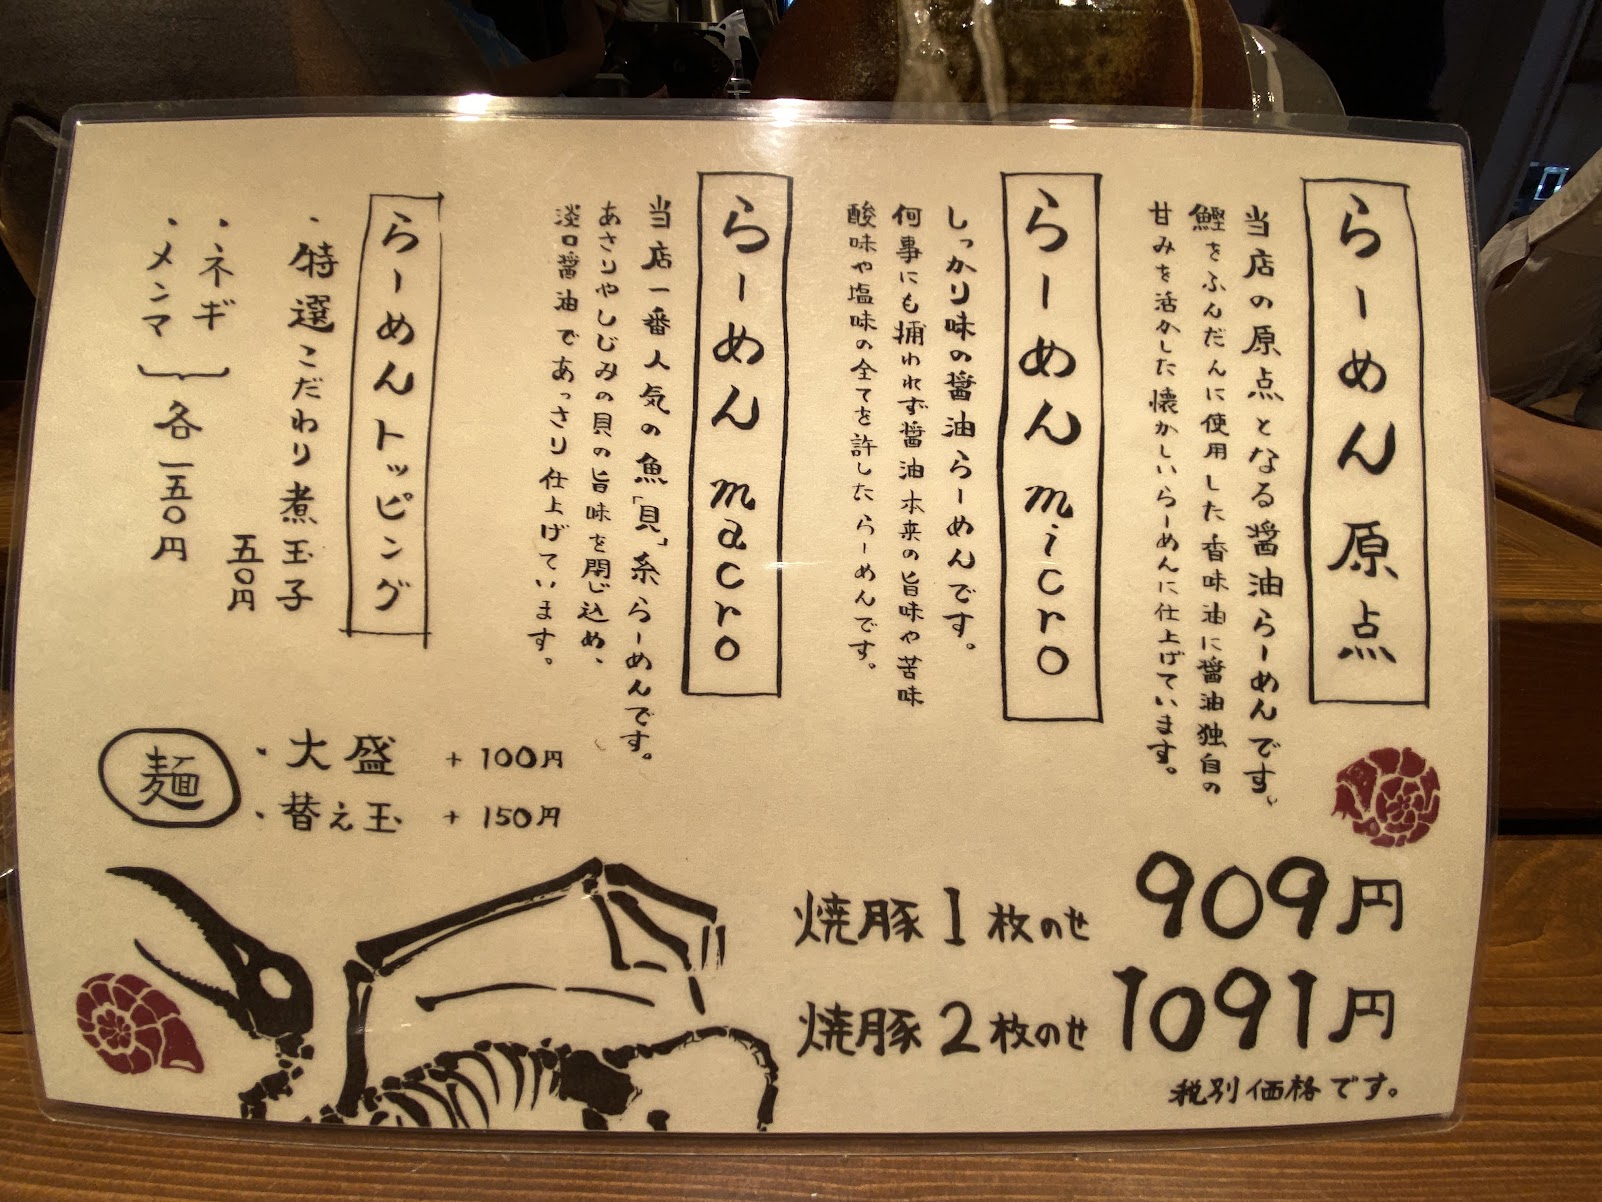 らーめん 原点
当店の原点となる醤油らーめんです。
鰹をふんだんに使用した香味油に醤油独自の
甘みを活かした懐かしいらーめんに仕上げています。
らーめん micro
しっかり味の醤油らーめんです。
何事にも捕われず醤油本来の旨味や苦味
酸味や塩味の全てを許したらーめんです。
らーめん macro
当店一番人気の魚「貝」系らーめんです。
あさりやしじみの貝の旨味を閉じ込め、
淡口醤油であっさり仕上げています。
らーめんトッピング
・特選こだわり煮玉子
五〇円
・ネギ
・メンマ
各一五〇円
麺
・大盛 +100円
・替え玉 +150円
焼豚1枚のせ 909円
焼豚2枚のせ 1091円
税別価格です。